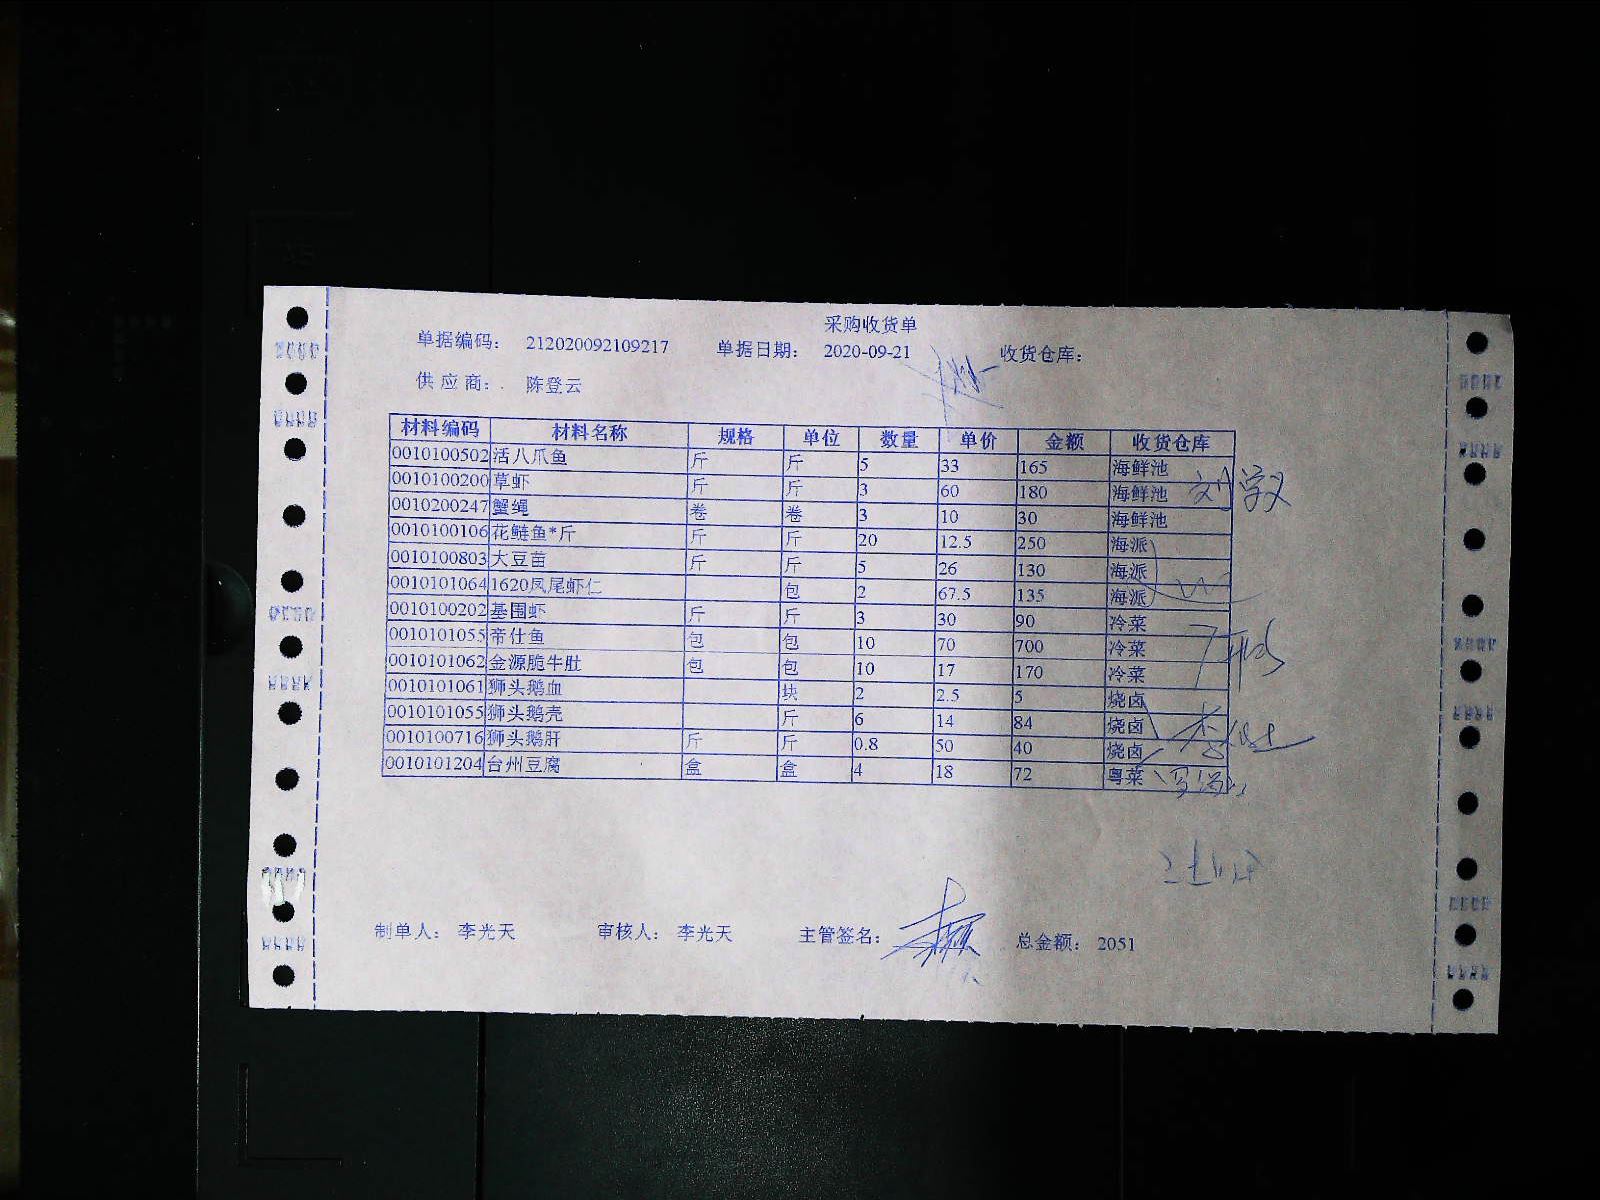 采购收货单
单据编码： 212020092109217 单据日期： 2020-09-21 收货仓库：
供 应 商： 陈登云
材料编码 材料名称 规格 单位 数量 单价 金额 收货仓库
0010100502 活八爪鱼 斤 斤 5 33 165 海鲜池
0010100200 草虾 斤 斤 3 60 180 海鲜池
0010200247 蟹绳 卷 卷 3 10 30 海鲜池
0010100106 花鲢鱼*斤 斤 斤 20 12.5 250 海派
0010100803 大豆苗 斤 斤 5 26 130 海派
0010101064 1620凤尾虾仁 包 2 67.5 135 海派
0010100202 基围虾 斤 斤 3 30 90 冷菜
0010101055 帝仕鱼 包 包 10 70 700 冷菜
0010101062 金源脆牛肚 包 包 10 17 170 冷菜
0010101061 狮头鹅血 块 2 2.5 5 烧卤
0010101055 狮头鹅壳 斤 6 14 84 烧卤
0010100716 狮头鹅肝 斤 斤 0.8 50 40 烧卤
0010101204 台州豆腐 盒 盒 4 18 72 粤菜
制单人： 李光天 审核人： 李光天 主管签名： 总金额： 2051